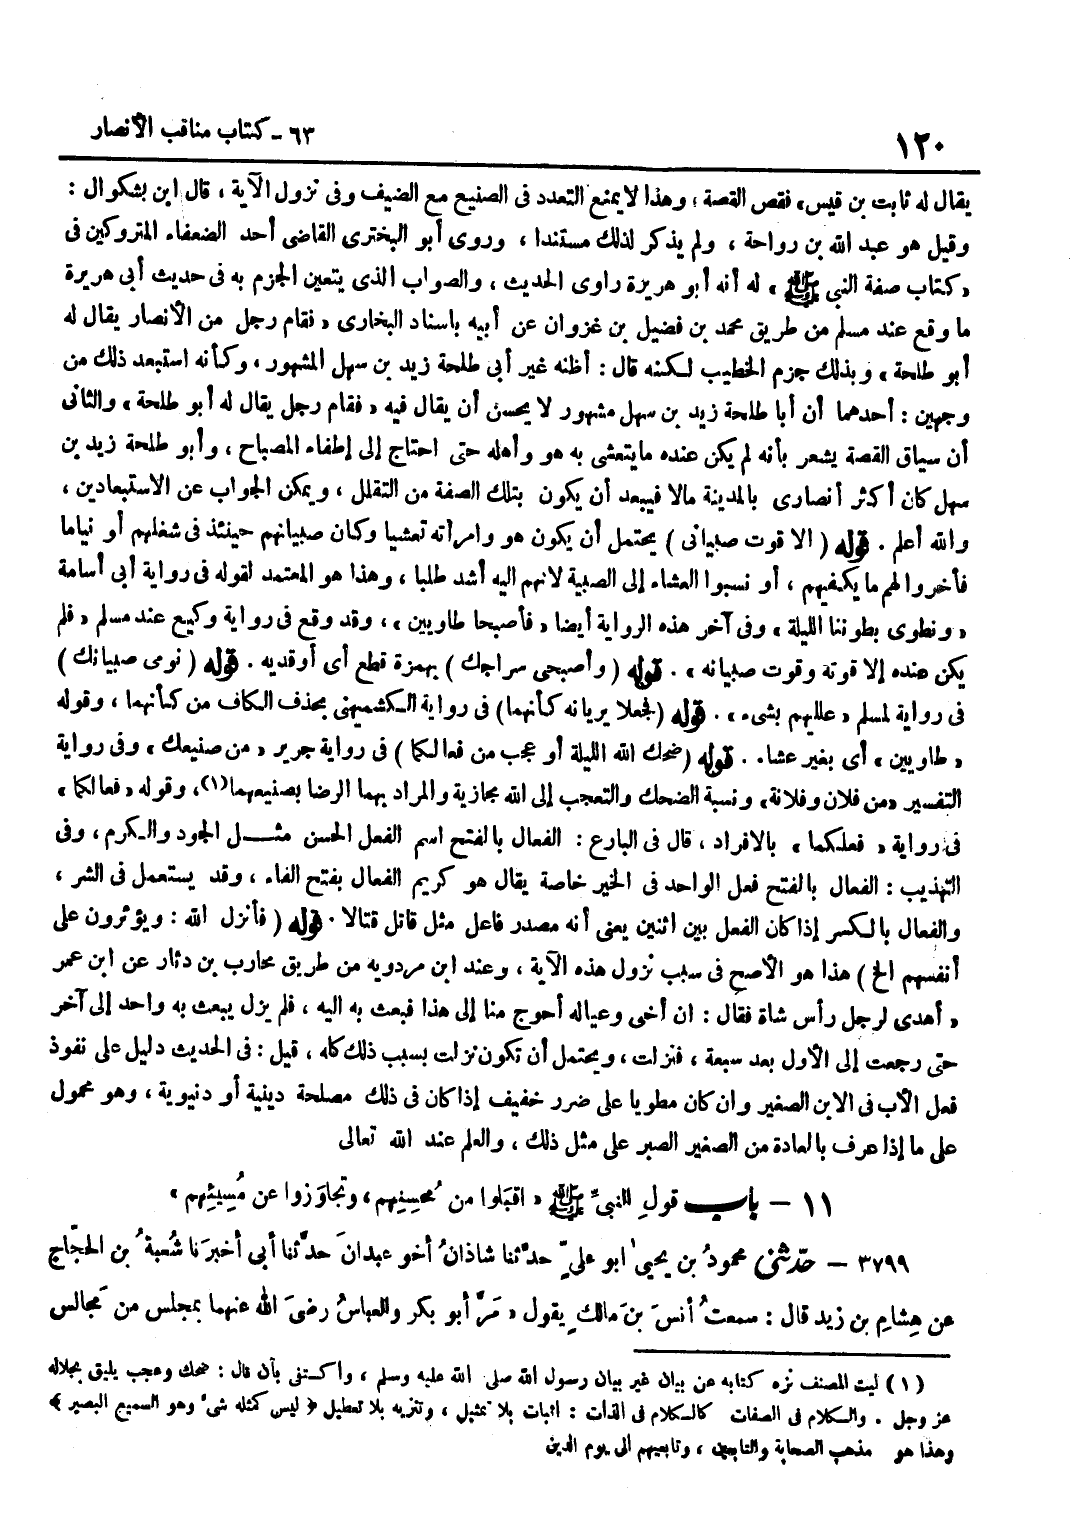 ١٢٠ ٦٣ - كتاب مناقب الأنصار
يقال له ثابت بن قيس» فقص القصة ؛ وهذا لا يمنع التعدد فى الصنيع مع الضيف وفى نزول الآية ، قال ابن بشكوال :
وقيل هو عبد الله بن رواحة ، ولم يذكر لذلك مستندا ، وروى أبو البخترى القاضى أحد الضعفاء المتروكين فى
« كتاب صفة النبى ﷺ » له أنه أبو هريرة راوى الحديث ، والصواب الذى يتعين الجزم به فى حديث أبى هريرة
ما وقع عند مسلم من طريق محمد بن فضيل بن غزوان عن أبيه باسناد البخارى « فقام رجل من الأنصار يقال له
أبو طلحة » وبذلك جزم الخطيب لكنه قال : أظنه غير أبى طلحة زيد بن سهل المشهور ، وكأنه استبعد ذلك من
وجهين : أحدهما أن أبا طلحة زيد بن سهل مشهور لا يحسن أن يقال فيه « فقام رجل يقال له أبو طلحة » والثانى
أن سياق القصة يشعر بأنه لم يكن عنده ما يتعشى به هو وأهله حتى احتاج إلى إطفاء المصباح ، وأبو طلحة زيد بن
سهل كان أكثر أنصارى بالمدينة مالا فيبعد أن يكون بتلك الصفة من التقلل ، ويمكن الجواب عن الاستبعادين ،
والله أعلم . قوله ( الا قوت صبيانى ) يحتمل أن يكون هو وامرأته تعشيا وكان صبيانهم حينئذ فى شغلهم أو نياما
فأخروا لهم ما يكفيهم ، أو نسبوا العشاء إلى الصبية لانهم اليه أشد طلبا ، وهذا هو المعتمد لقوله فى رواية أبى أسامة
« ونطوى بطوننا الليلة » وفى آخر هذه الرواية أيضا « فأصبحا طاويين » ، وقد وقع فى رواية وكيع عند مسلم « فلم
يكن عنده إلا قوته وقوت صبيانه » . قوله ( وأصبحى سراجك ) بهمزة قطع أى أوقديه . قوله ( نومى صبيانك )
فى رواية لمسلم « علليهم بشىء » . قوله ( فجعلا يريانه كأنهما ) فى رواية الكشميهنى بحذف الكاف من كأنهما ، وقوله
« طاويين » أى بغير عشاء . قوله ( ضحك الله الليلة أو عجب من فعالكما ) فى رواية جرير « من صنيعك » وفى رواية
التفسير « من فلان وفلانة » ونسبة الضحك والتعجب إلى الله مجازية والمراد بهما الرضا بصنيعهما(١) ، وقوله « فعالكما »
فى رواية « فعلكما » بالافراد ، قال فى البارع : الفعال بالفتح اسم الفعل الحسن مثل الجود والكرم ، وفى
التهذيب : الفعال بالفتح فعل الواحد فى الخير خاصة يقال هو كريم الفعال بفتح الفاء ، وقد يستعمل فى الشر ،
والفعال بالكسر إذا كان الفعل بين اثنين يعنى أنه مصدر فاعل مثل قاتل قتالا . قوله ( فأنزل الله : ويؤثرون على
أنفسهم الخ ) هذا هو الأصح فى سبب نزول هذه الآية ، وعند ابن مردويه من طريق محارب بن دثار عن ابن عمر
« أهدى لرجل رأس شاة فقال : ان أخى وعياله أحوج منا إلى هذا فبعث به اليه ، فلم يزل يبعث به واحد إلى آخر
حتى رجعت إلى الأول بعد سبعة ، فنزلت ، ويحتمل أن تكون نزلت بسبب ذلك كله ، قيل : فى الحديث دليل على نفوذ
فعل الأب فى الابن الصغير وان كان مطويا على ضرر خفيف إذا كان فى ذلك مصلحة دينية أو دنيوية ، وهو محمول
على ما إذا عرف بالعادة من الصغير الصبر على مثل ذلك ، والعلم عند الله تعالى
١١ - باب قولِ النبىِّ ﷺ « اقبَلوا من مُحسِنِهم ، وتجاوَزوا عن مُسِيئِهم »
٣٧٩٩ - حدّثنى محمودُ بن يحيىٰ ابو علىٍّ حدَّثنا شاذانُ أخو عبدانَ حدَّثنا أبى أخبرَنا شُعبةُ بن الحجّاج
عن هِشامِ بن زيد قال : سمعتُ أنسَ بنَ مالكٍ يقول « مَرَّ أبو بكر والعباسُ رضىَ اللهُ عنهما بمجلس من مَجالس
(١) ليت المصنف نزه كتابه عن بيان غير بيان رسول الله صلى الله عليه وسلم ، واكتفى بأن قال : ضحك وعجب يليق بجلاله
عز وجل . والكلام فى الصفات كالكلام فى الذات : اثبات بلا تمثيل ، وتنزيه بلا تعطيل ﴿ ليس كمثله شىء وهو السميع البصير ﴾
وهذا هو مذهب الصحابة والتابعين ، وتابعيهم الى يوم الدين